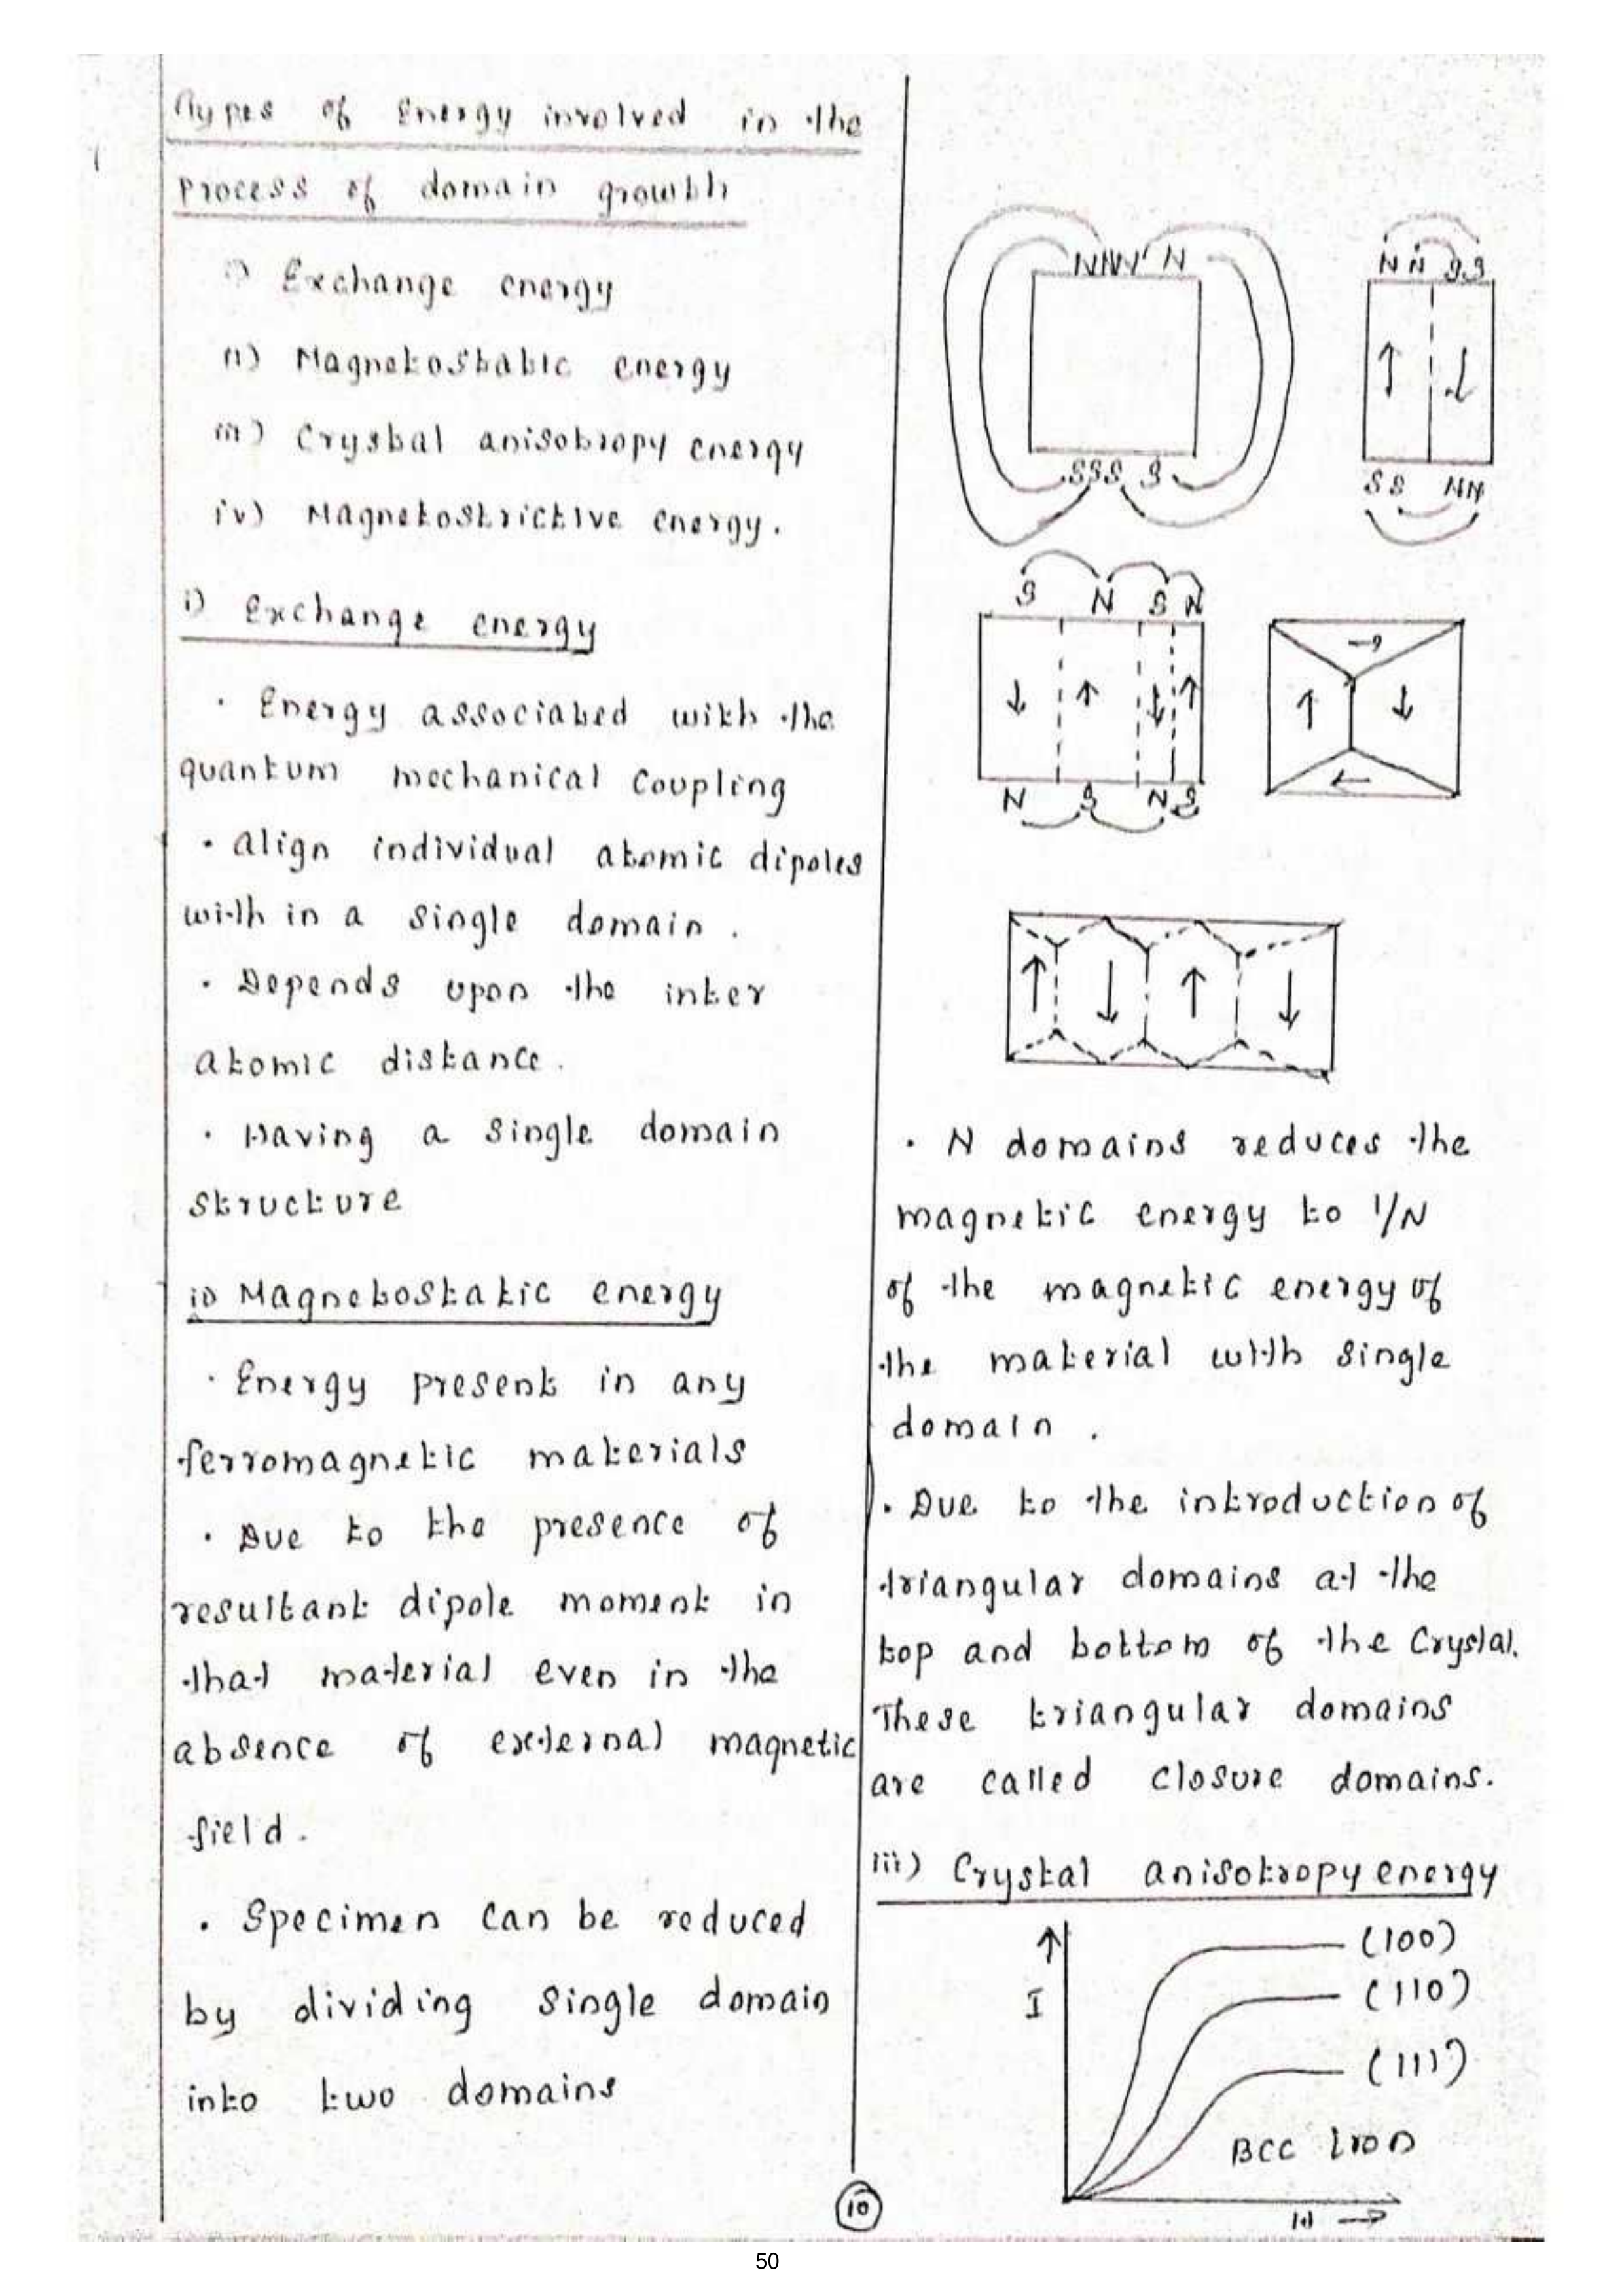 Types of Energy involved in the
Process of domain growth
i) Exchange energy
ii) Magnetostatic energy
iii) Crystal anisotropy energy
iv) Magnetostrictive energy.
i) Exchange energy
· Energy associated with the
quantum mechanical Coupling
· Align individual atomic dipoles
with in a single domain .
· Depends upon the inter
atomic distance .
· Having a single domain
structure
ii) Magnetostatic energy
· Energy present in any
ferromagnetic materials
· Due to the presence of
resultant dipole moment in
that material even in the
absence of external magnetic
field .
· Specimen can be reduced
by dividing single domain
into two domains
NNN N
SSS S
N N S S
S S NN
S N S N
N S N S
· N domains reduces the
magnetic energy to 1/N
of the magnetic energy of
the material with single
domain .
· Due to the introduction of
triangular domains at the
top and bottom of the Crystal.
These triangular domains
are called closure domains.
iii) Crystal anisotropy energy
(100)
I
(110)
(111)
BCC Iron
H
10
50